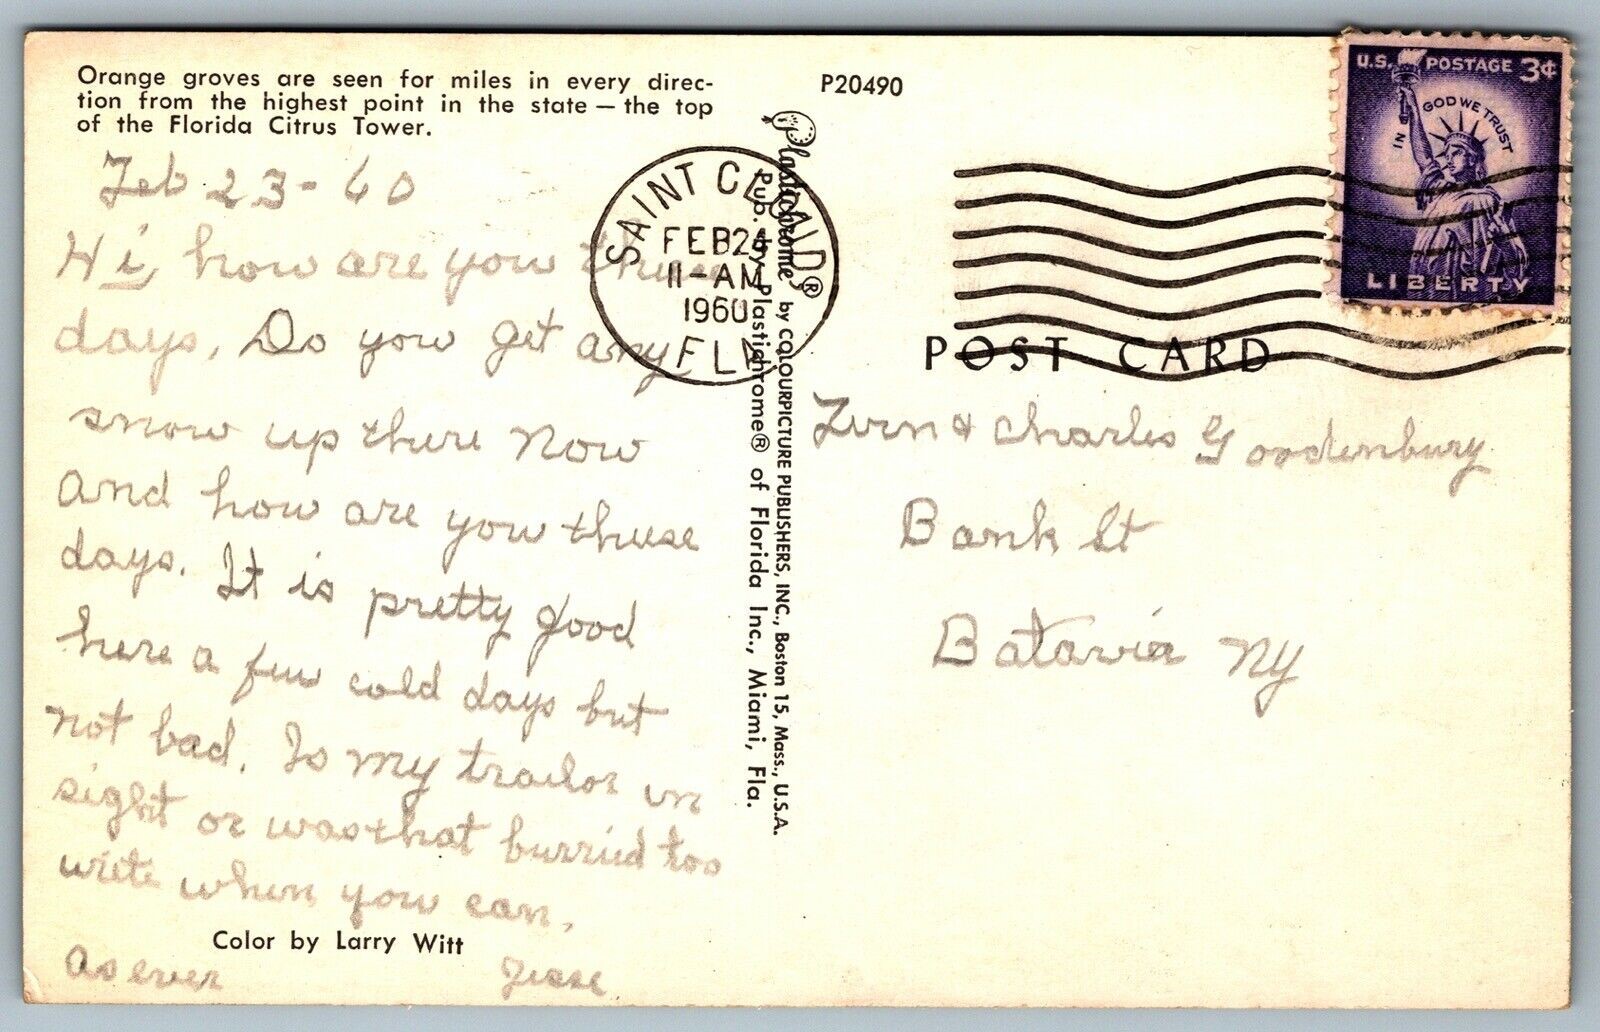 Orange groves are seen for miles in every direc-
tion from the highest point in the state — the top
of the Florida Citrus Tower.
Feb 23-60
Hi, how are you these
days, Do you get any
snow up there now
and how are you these
days. It is pretty good
here a few cold days but
not bad. Is my trailor in
sight or was that burried too
write when you can,
Color by Larry Witt
As ever Jesse
P20490
Plastichrome® by COLOURPICTURE PUBLISHERS, INC., Boston 15, Mass., U.S.A.
Pub. by Plastichrome® of Florida Inc., Miami, Fla.
SAINT CLOUD
FEB 24
11-AM
1960
FLA
U.S. POSTAGE 3¢
IN GOD WE TRUST
LIBERTY
POST CARD
& Charles Goodenbury
Bank St
Batavia NY